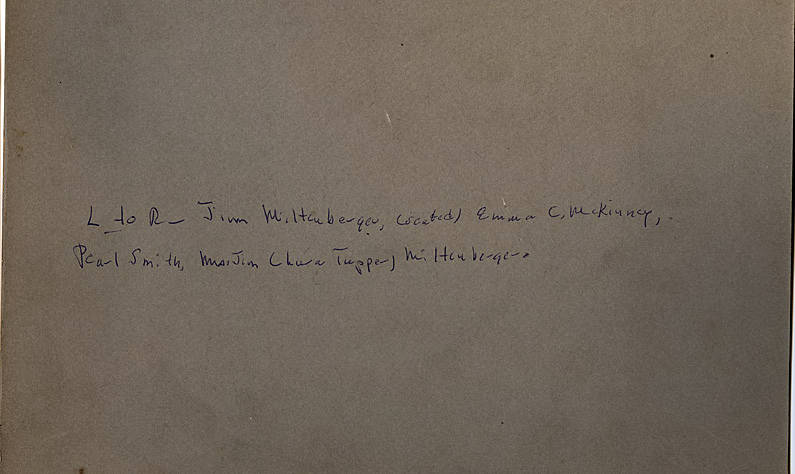 L to R - Jim Miltenberger, (seated) Emma C. McKinney,
Pearl Smith, Mrs. Jim Clara Tupper) Miltenberger.